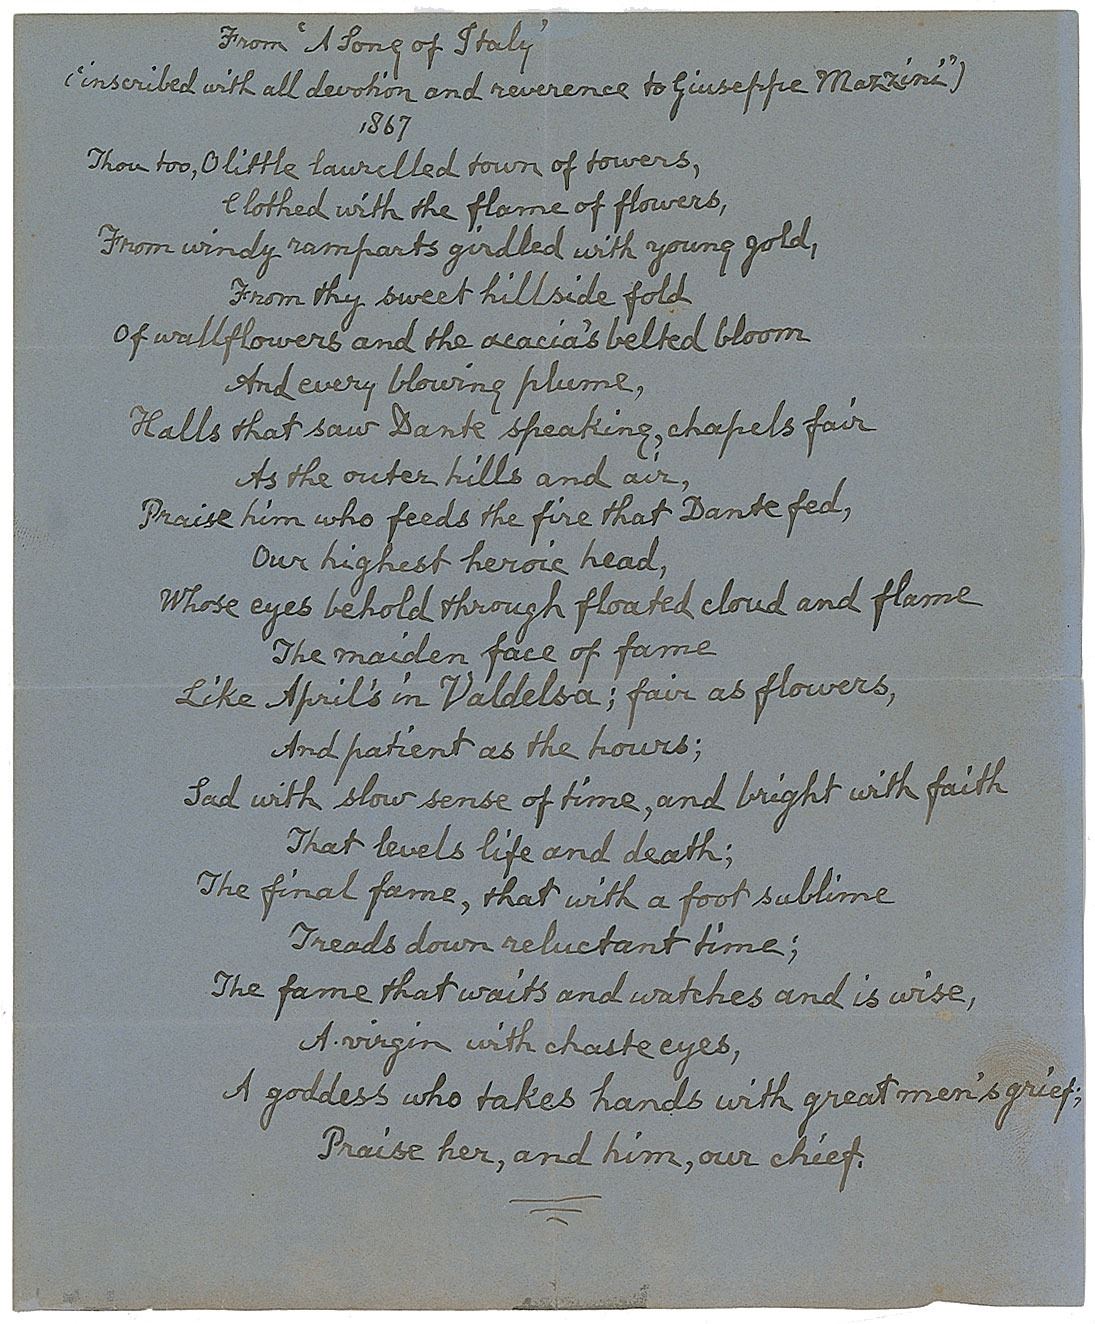 From 'A Song of Italy'
("inscribed with all devotion and reverence to Giuseppe Mazzini")
1867
Thou too, O little laurelled town of towers,
Clothed with the flame of flowers,
From windy ramparts girdled with young gold,
From thy sweet hillside fold
Of wallflowers and the acacia's belted bloom
And every blowing plume,
Halls that saw Dante speaking, chapels fair
As the outer hills and air,
Praise him who feeds the fire that Dante fed,
Our highest heroic head,
Whose eyes behold through floated cloud and flame
The maiden face of fame
Like April's in Valdelsa; fair as flowers,
And patient as the hours;
Sad with slow sense of time, and bright with faith
That levels life and death;
The final fame, that with a foot sublime
Treads down reluctant time;
The fame that waits and watches and is wise,
A virgin with chaste eyes,
A goddess who takes hands with great men's grief;
Praise her, and him, our chief.